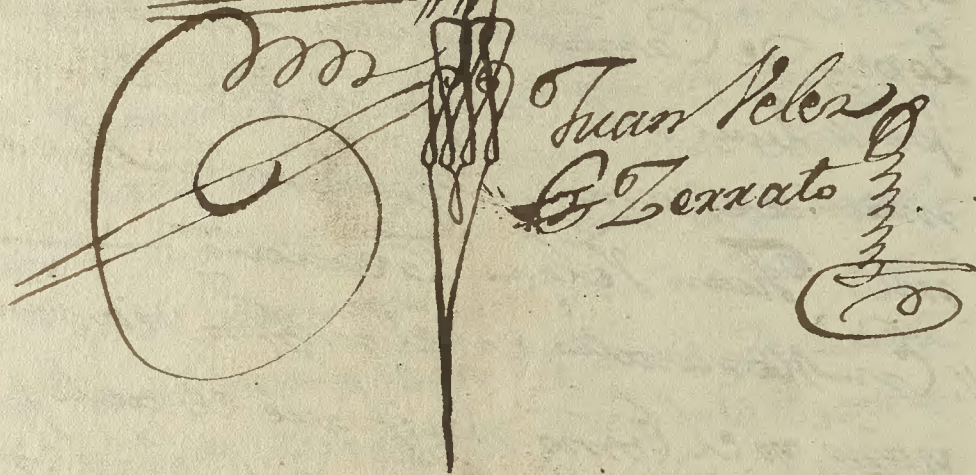 Juan Velez
Zerrato